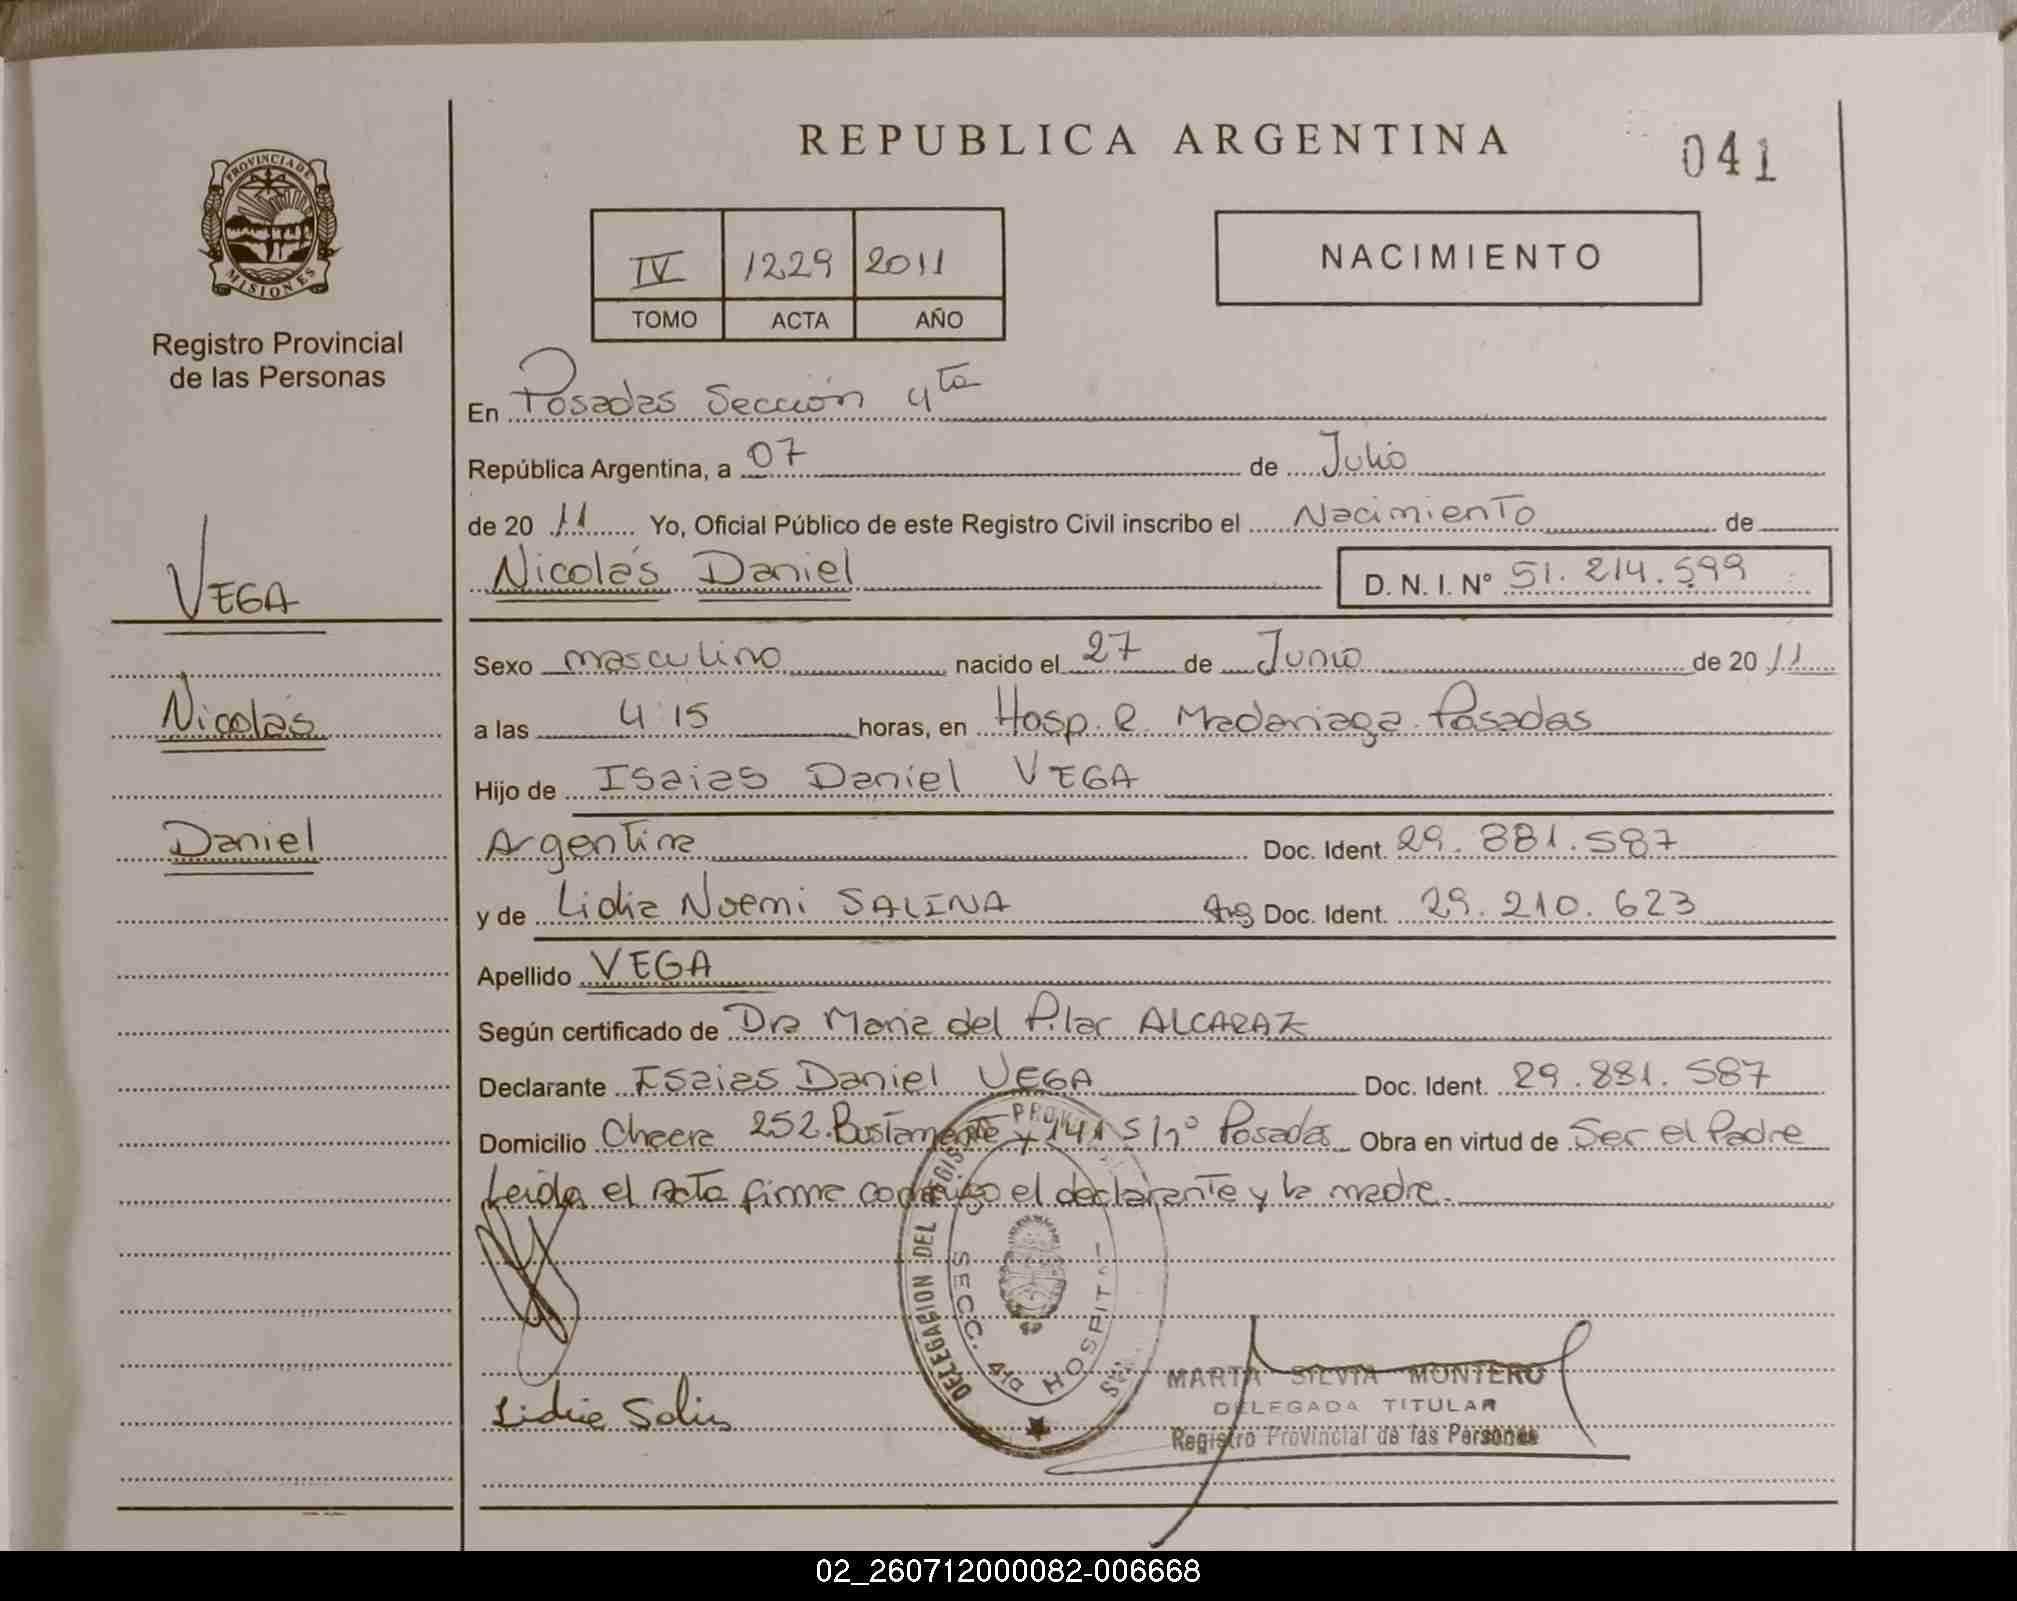 REPUBLICA ARGENTINA
041
PROVINCIA DE
MISIONES
Registro Provincial
de las Personas
IV 1229 2011
TOMO ACTA AÑO
NACIMIENTO
En Posadas Sección 4ta
República Argentina, a 07 de Julio
de 20 11 Yo, Oficial Público de este Registro Civil inscribo el Nacimiento de
Nicolás Daniel D. N. I. N° 51.214.599
VEGA
Nicolás
Daniel
Sexo masculino nacido el 27 de Junio de 20 11
a las 4:15 horas, en Hosp. R. Madariaga. Posadas
Hijo de Isaias Daniel VEGA
Argentina Doc. Ident. 29.881.587
y de Lidia Noemi SALINA Arg Doc. Ident. 29.210.623
Apellido VEGA
Según certificado de Dra Maria del Pilar ALCARAZ
Declarante Isaias Daniel VEGA Doc. Ident. 29.881.587
Domicilio Chacra 252. Bustamante y 141 S/n° Posadas Obra en virtud de Ser el Padre
Leida el Acta firma conmigo el declarante y la madre.
DELEGACION DEL REGISTRO
SECC. 4ta HOSPITAL
Lidia Salin
MARTA SILVIA MONTERO
DELEGADA TITULAR
Registro Provincial de las Personas
02_260712000082-006668